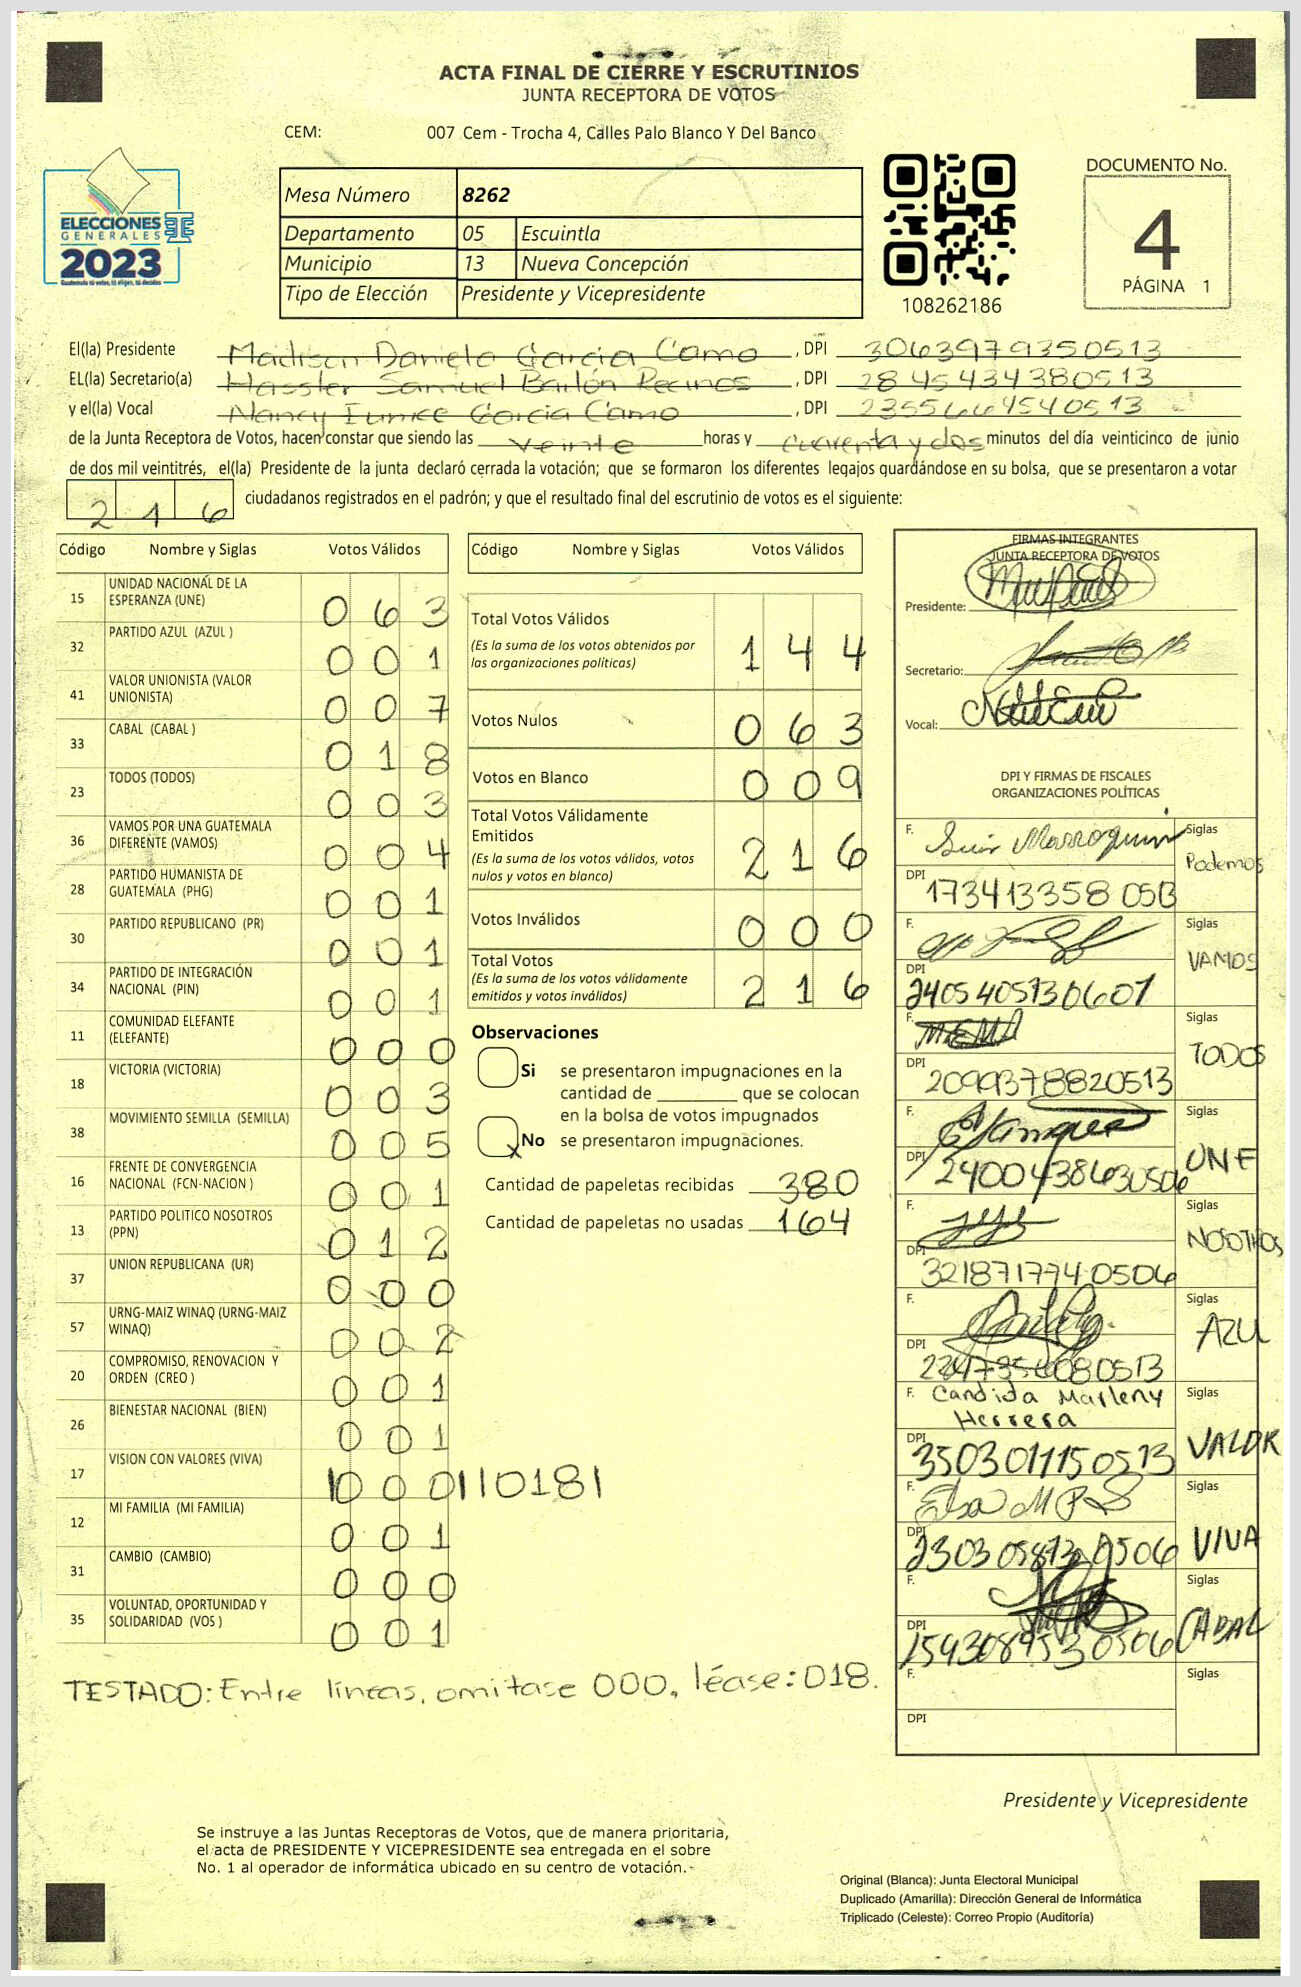 ACTA FINAL DE CIERRE Y ESCRUTINIOS
JUNTA RECEPTORA DE VOTOS
CEM: 007 Cem - Trocha 4, Calles Palo Blanco Y Del Banco
ELECCIONES
GENERALES
2023
Guatemala tú votas, tú eliges, tú decides
Mesa Número 8262
Departamento 05 Escuintla
Municipio 13 Nueva Concepción
Tipo de Elección Presidente y Vicepresidente
108262186
DOCUMENTO No.
4
PÁGINA 1
El(la) Presidente Madison Daniela Garcia Camo, DPI 3063979350513
EL(la) Secretario(a) Hassler Samuel Bailón Recinos, DPI 2845434380513
y el(la) Vocal Nancy Eunice Garcia Camo, DPI 2355664540513
de la Junta Receptora de Votos, hacen constar que siendo las veinte horas y cuarenta y dos minutos del día veinticinco de junio
de dos mil veintitrés, el(la) Presidente de la junta declaró cerrada la votación; que se formaron los diferentes legajos guardándose en su bolsa, que se presentaron a votar
216 ciudadanos registrados en el padrón; y que el resultado final del escrutinio de votos es el siguiente:
Código Nombre y Siglas Votos Válidos
15 UNIDAD NACIONAL DE LA ESPERANZA (UNE) 063
32 PARTIDO AZUL (AZUL ) 001
41 VALOR UNIONISTA (VALOR UNIONISTA) 007
33 CABAL (CABAL ) 018
23 TODOS (TODOS) 003
36 VAMOS POR UNA GUATEMALA DIFERENTE (VAMOS) 004
28 PARTIDO HUMANISTA DE GUATEMALA (PHG) 001
30 PARTIDO REPUBLICANO (PR) 001
34 PARTIDO DE INTEGRACIÓN NACIONAL (PIN) 001
11 COMUNIDAD ELEFANTE (ELEFANTE) 000
18 VICTORIA (VICTORIA) 003
38 MOVIMIENTO SEMILLA (SEMILLA) 005
16 FRENTE DE CONVERGENCIA NACIONAL (FCN-NACION ) 001
13 PARTIDO POLITICO NOSOTROS (PPN) 012
37 UNION REPUBLICANA (UR) 000
57 URNG-MAIZ WINAQ (URNG-MAIZ WINAQ) 002
20 COMPROMISO, RENOVACION Y ORDEN (CREO ) 001
26 BIENESTAR NACIONAL (BIEN) 001
17 VISION CON VALORES (VIVA) 000 110181
12 MI FAMILIA (MI FAMILIA) 001
31 CAMBIO (CAMBIO) 000
35 VOLUNTAD, OPORTUNIDAD Y SOLIDARIDAD (VOS ) 001
TESTADO: Entre líneas, omitase 000, léase: 018.
Código Nombre y Siglas Votos Válidos
Total Votos Válidos 144
(Es la suma de los votos obtenidos por
las organizaciones políticas)
Votos Nulos 063
Votos en Blanco 009
Total Votos Válidamente
Emitidos 216
(Es la suma de los votos válidos, votos
nulos y votos en blanco)
Votos Inválidos 000
Total Votos 216
(Es la suma de los votos válidamente
emitidos y votos inválidos)
Observaciones
Si se presentaron impugnaciones en la
cantidad de ________ que se colocan
en la bolsa de votos impugnados
x No se presentaron impugnaciones.
Cantidad de papeletas recibidas 380
Cantidad de papeletas no usadas 164
FIRMAS INTEGRANTES
JUNTA RECEPTORA DE VOTOS
Presidente:
Secretario:
Vocal:
DPI Y FIRMAS DE FISCALES
ORGANIZACIONES POLÍTICAS
F. Siglas Podemos
DPI
F. Siglas VAMOS
DPI 2405405730607
F. Siglas TODOS
DPI 2099378820513
F. Siglas UNE
DPI 2400438630506
F. Siglas NOSOTROS
DPI 3218717740506
F. Siglas AZUL
DPI
F. Candida Marleny Herrera Siglas VALOR
DPI 3503011150513
F. Siglas VIVA
DPI
F. Siglas CABAL
DPI 1543089530506
F. Siglas
DPI
Presidente y Vicepresidente
Se instruye a las Juntas Receptoras de Votos, que de manera prioritaria,
el acta de PRESIDENTE Y VICEPRESIDENTE sea entregada en el sobre
No. 1 al operador de informática ubicado en su centro de votación.-
Original (Blanca): Junta Electoral Municipal
Duplicado (Amarilla): Dirección General de Informática
Triplicado (Celeste): Correo Propio (Auditoría)